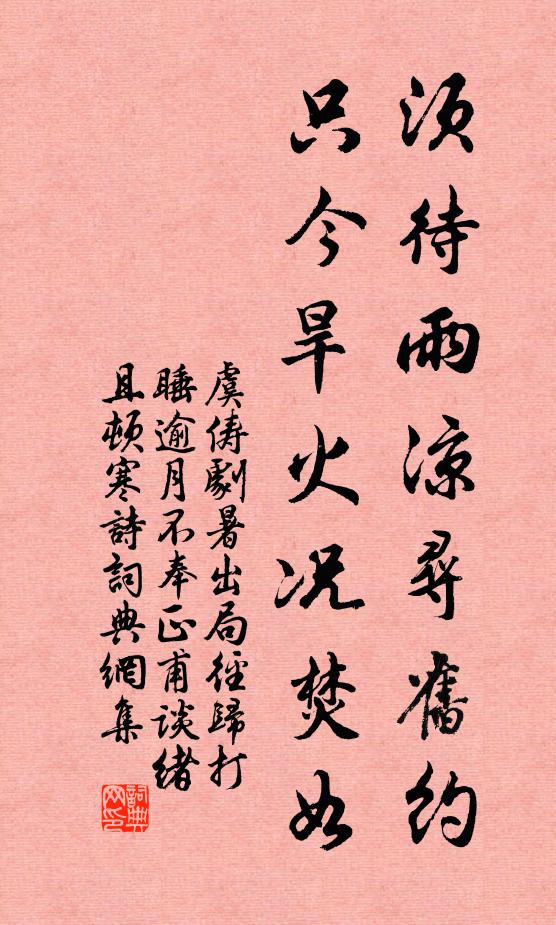 須待雨涼尋舊約
只今旱火況焚如
虞儔劇暑出局徑歸打
睡逾月不奉正甫談緒
且頓寒詩詞典網集
詞典網印